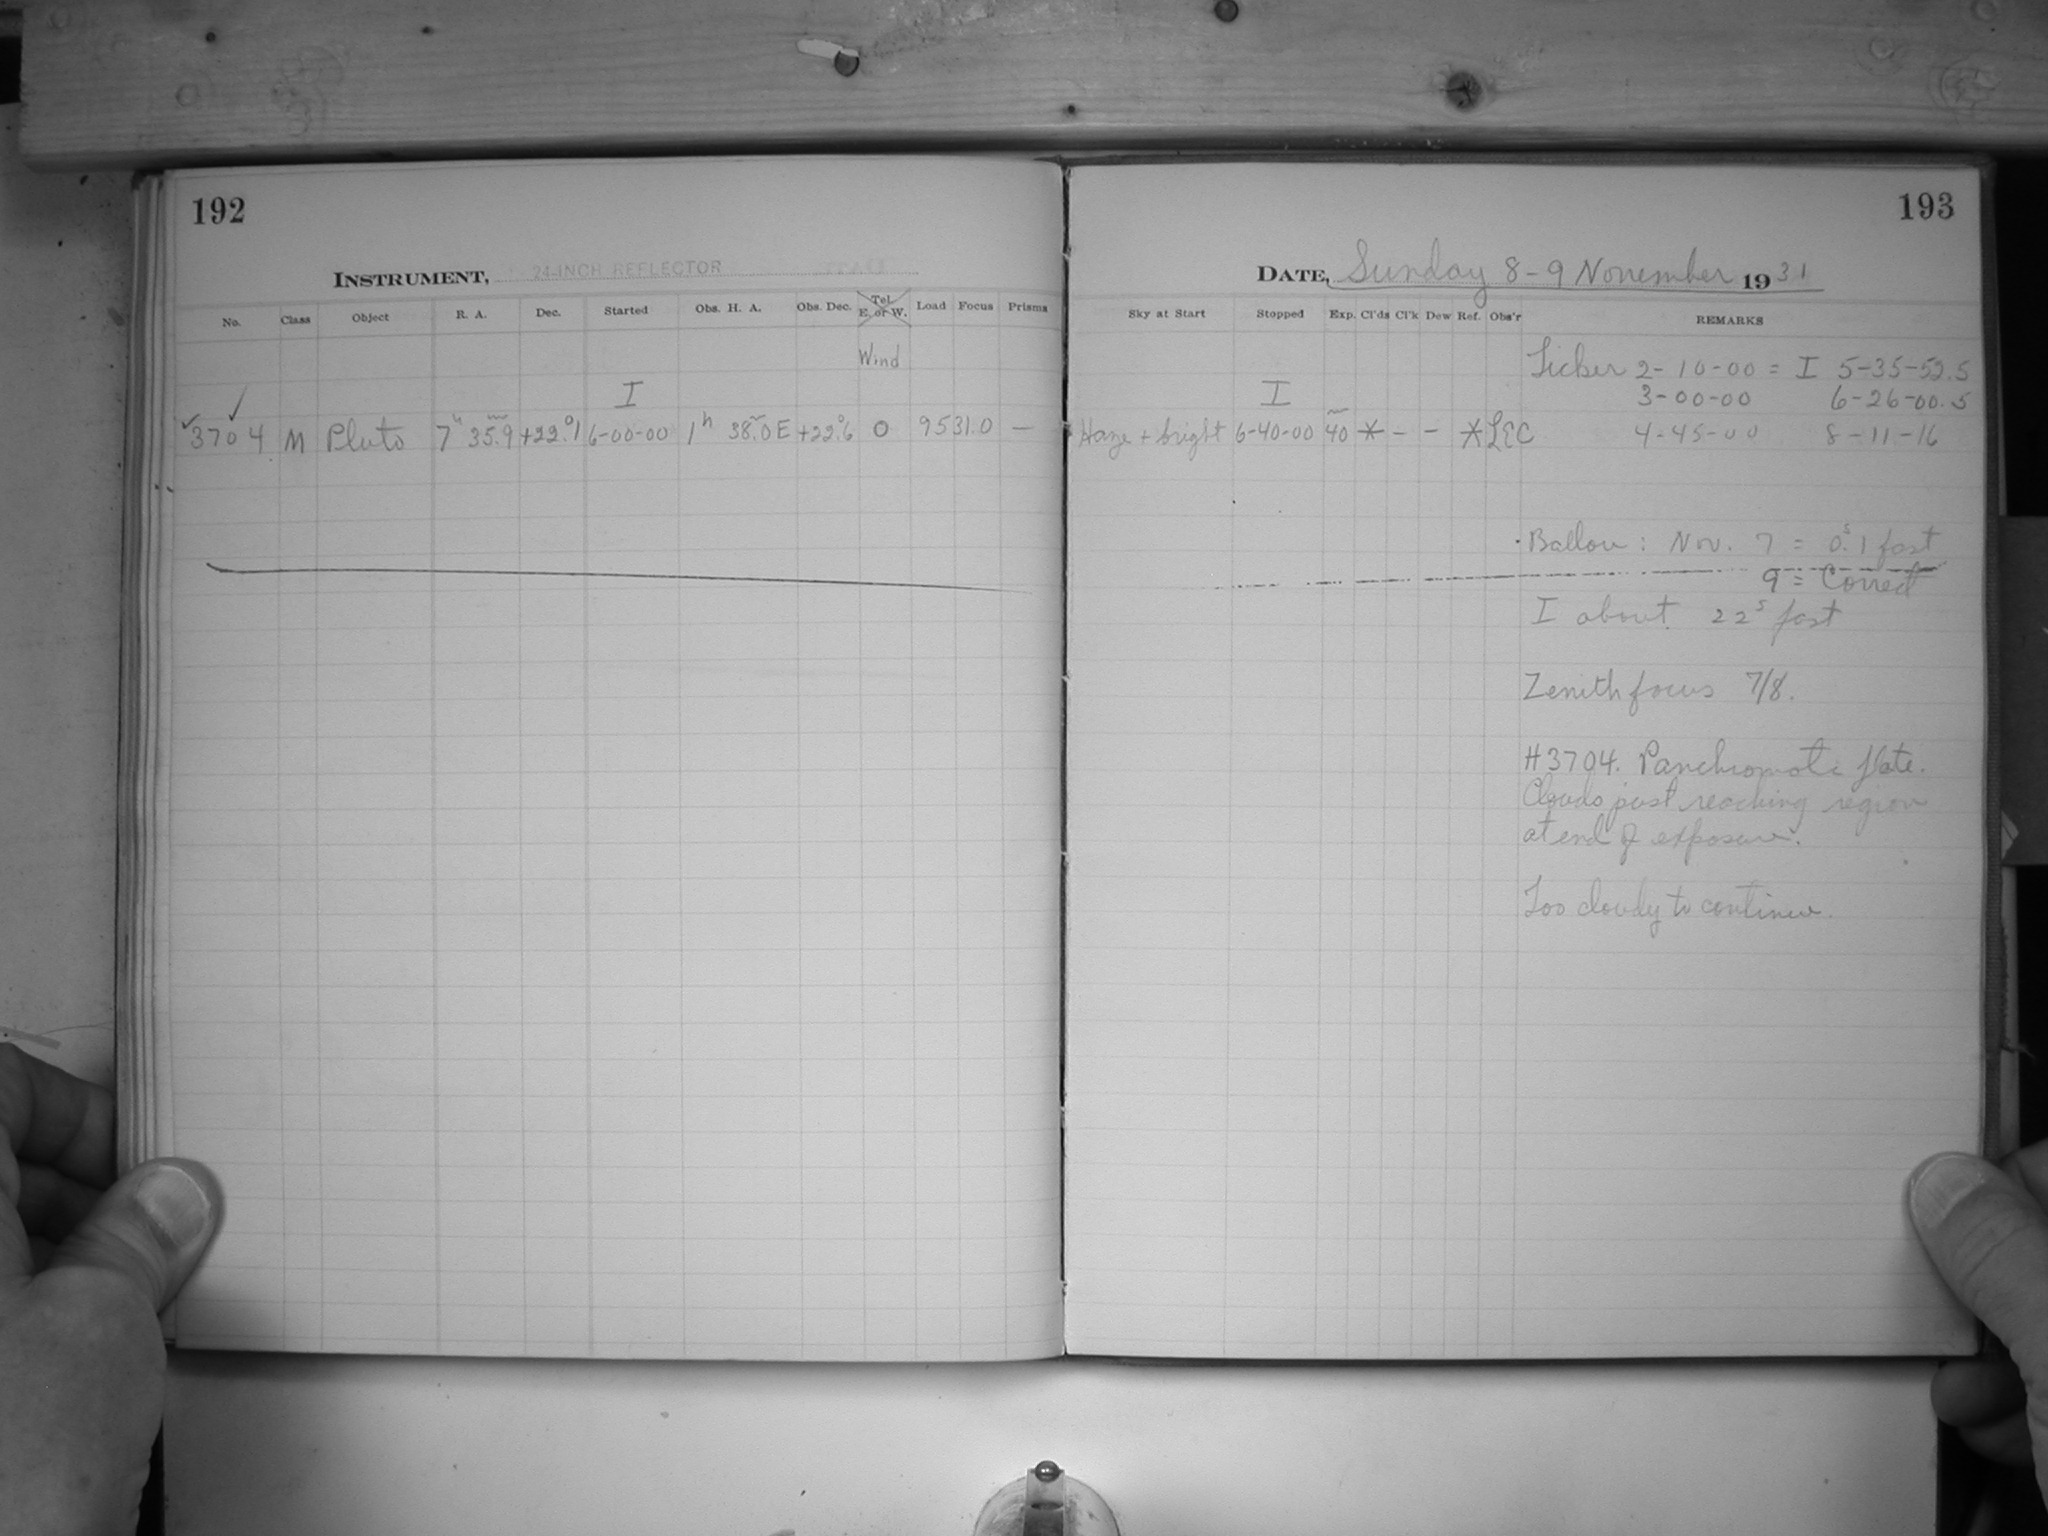 192
INSTRUMENT, 24-INCH REFLECTOR
No. Class Object R. A. Dec. Started Obs. H. A. Obs. Dec. Tel. E. or W. Load Focus Prisms
Wind
I
3704 M Pluto 7h 35.9m +22.°1 6-00-00 1h 38.m0 E +22.°6 0 95 31.0 —
193
DATE, Sunday 8-9 November 1931
Sky at Start Stopped Exp. Cl'ds Cl'k Dew Ref. Obs'r REMARKS
Ticker 2-10-00 = I 5-35-52.5
I 3-00-00 6-26-00.5
Haze + bright 6-40-00 40m * - - * LEC 4-45-00 8-11-16
Ballou: Nov. 7 = 0.s1 fast
9 = Correct
I about 22s fast
Zenith focus 7/8.
H3704. Panchromatic plate.
Clouds just reaching region
at end of exposure.
Too cloudy to continue.